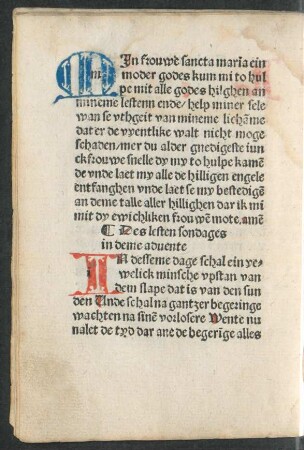 MIn frouwe sancta maria ein
moder godes kum mi to hul
pe mit alle godes hilghen an
mineme lestenn ende/ help miner sele
wan se vthgeit van mineme lichēme
dat er de vyentlike walt nicht moge
schaden/ mer du alder gnedigeste iun
ckfrouwe snelle dy my to hulpe kamē
de vnde laet my alle de hilligen engele
entfanghen vnde laet se my bestedigē
an deme talle aller hillighen dar ik mi
mit dy ewichliken frouwēn mote. amē
C Des lesten sondages
in deme aduente
IN desseme dage schal ein ye-
welick minsche vpstan van
dem slape dat is van den sun
den Unde schal na gantzer begeringe
wachten na sinē vorlosere Wente nu
nalet de tyd dar ane de begerige alles